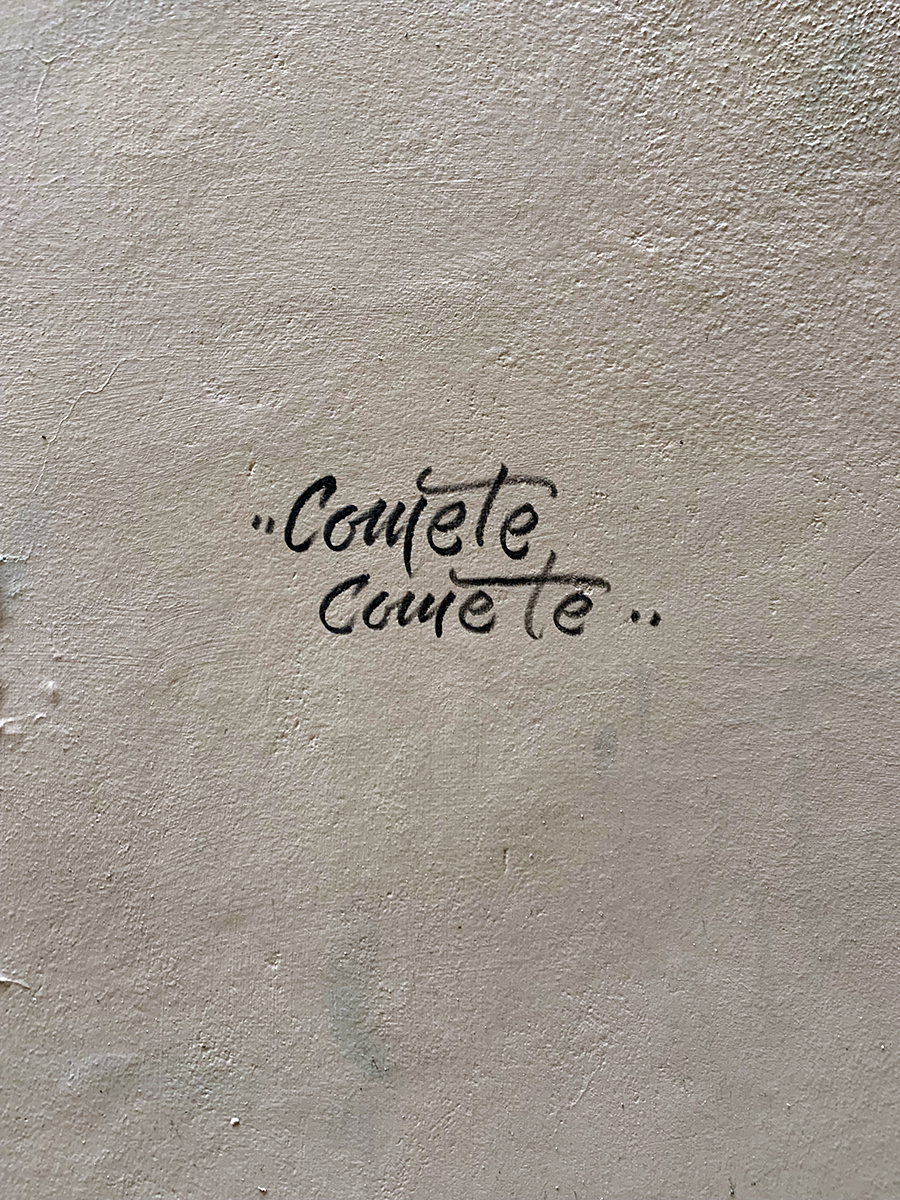 "Comete
Comete..